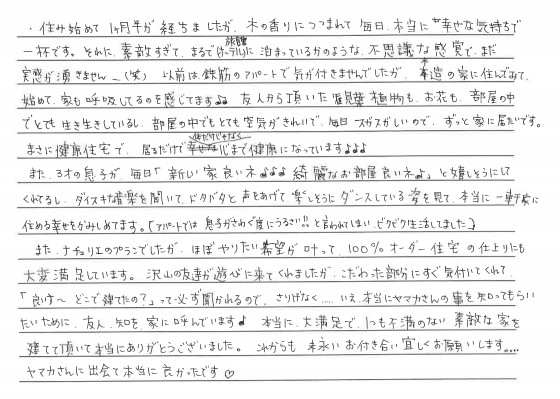 ・住み始めて1ヶ月半が経ちましたが、木の香りにつつまれて毎日、本当に幸せな気持ちで
一杯です。それに、素敵すぎて、まるで旅館に泊まっているかのような、不思議な感覚で、まだ
実感が湧きません…(笑) 以前は、鉄筋のアパートで気が付きませんでしたが、木造の家に住んでみて、
始めて、家も呼吸してるのを感じてます♪♪ 友人から頂いた観葉植物も、お花も、部屋の中
でとても生き生きしているし、部屋の中でもとても空気がきれいで、毎日スガスガしいので、ずっと家に居たいです。
まさに健康住宅で、居るだけで心まで健康になっています♪♪♪
また、3才の息子が、毎日「新しい家良いネ♪♪♪綺麗なお部屋良いネ♪」と嬉しそうにして
くれてるし、ダイスキな音楽を聞いて、ドタバタと声をあげて楽しそうにダンスしている姿を見て、本当に一軒家に
住める幸せをかみしめてます。(アパートでは息子がさわぐ度にうるさい!!と言われてしまい、ビクビク生活してました)
また、ナチュリエのプランでしたが、ほぼやりたい希望が叶って、100%オーダー住宅の仕上りにも
大変満足しています。沢山の友達が遊びに来てくれましたが、こだわった部分にすぐ気付いてくれて、
「良いな〜どこで建てたの?」って必ず聞かれるので、さりげなく……いえ、本当にヤマカさんの事を知ってもらい
たいために、友人、知人を、家に呼んでいます♪ 本当に、大満足で、1つも不満のない素敵な家を
建てて頂いて本当にありがとうございました。これからも末永いお付き合い宜しくお願いします。…
ヤマカさんに出会て本当に良かったです♡